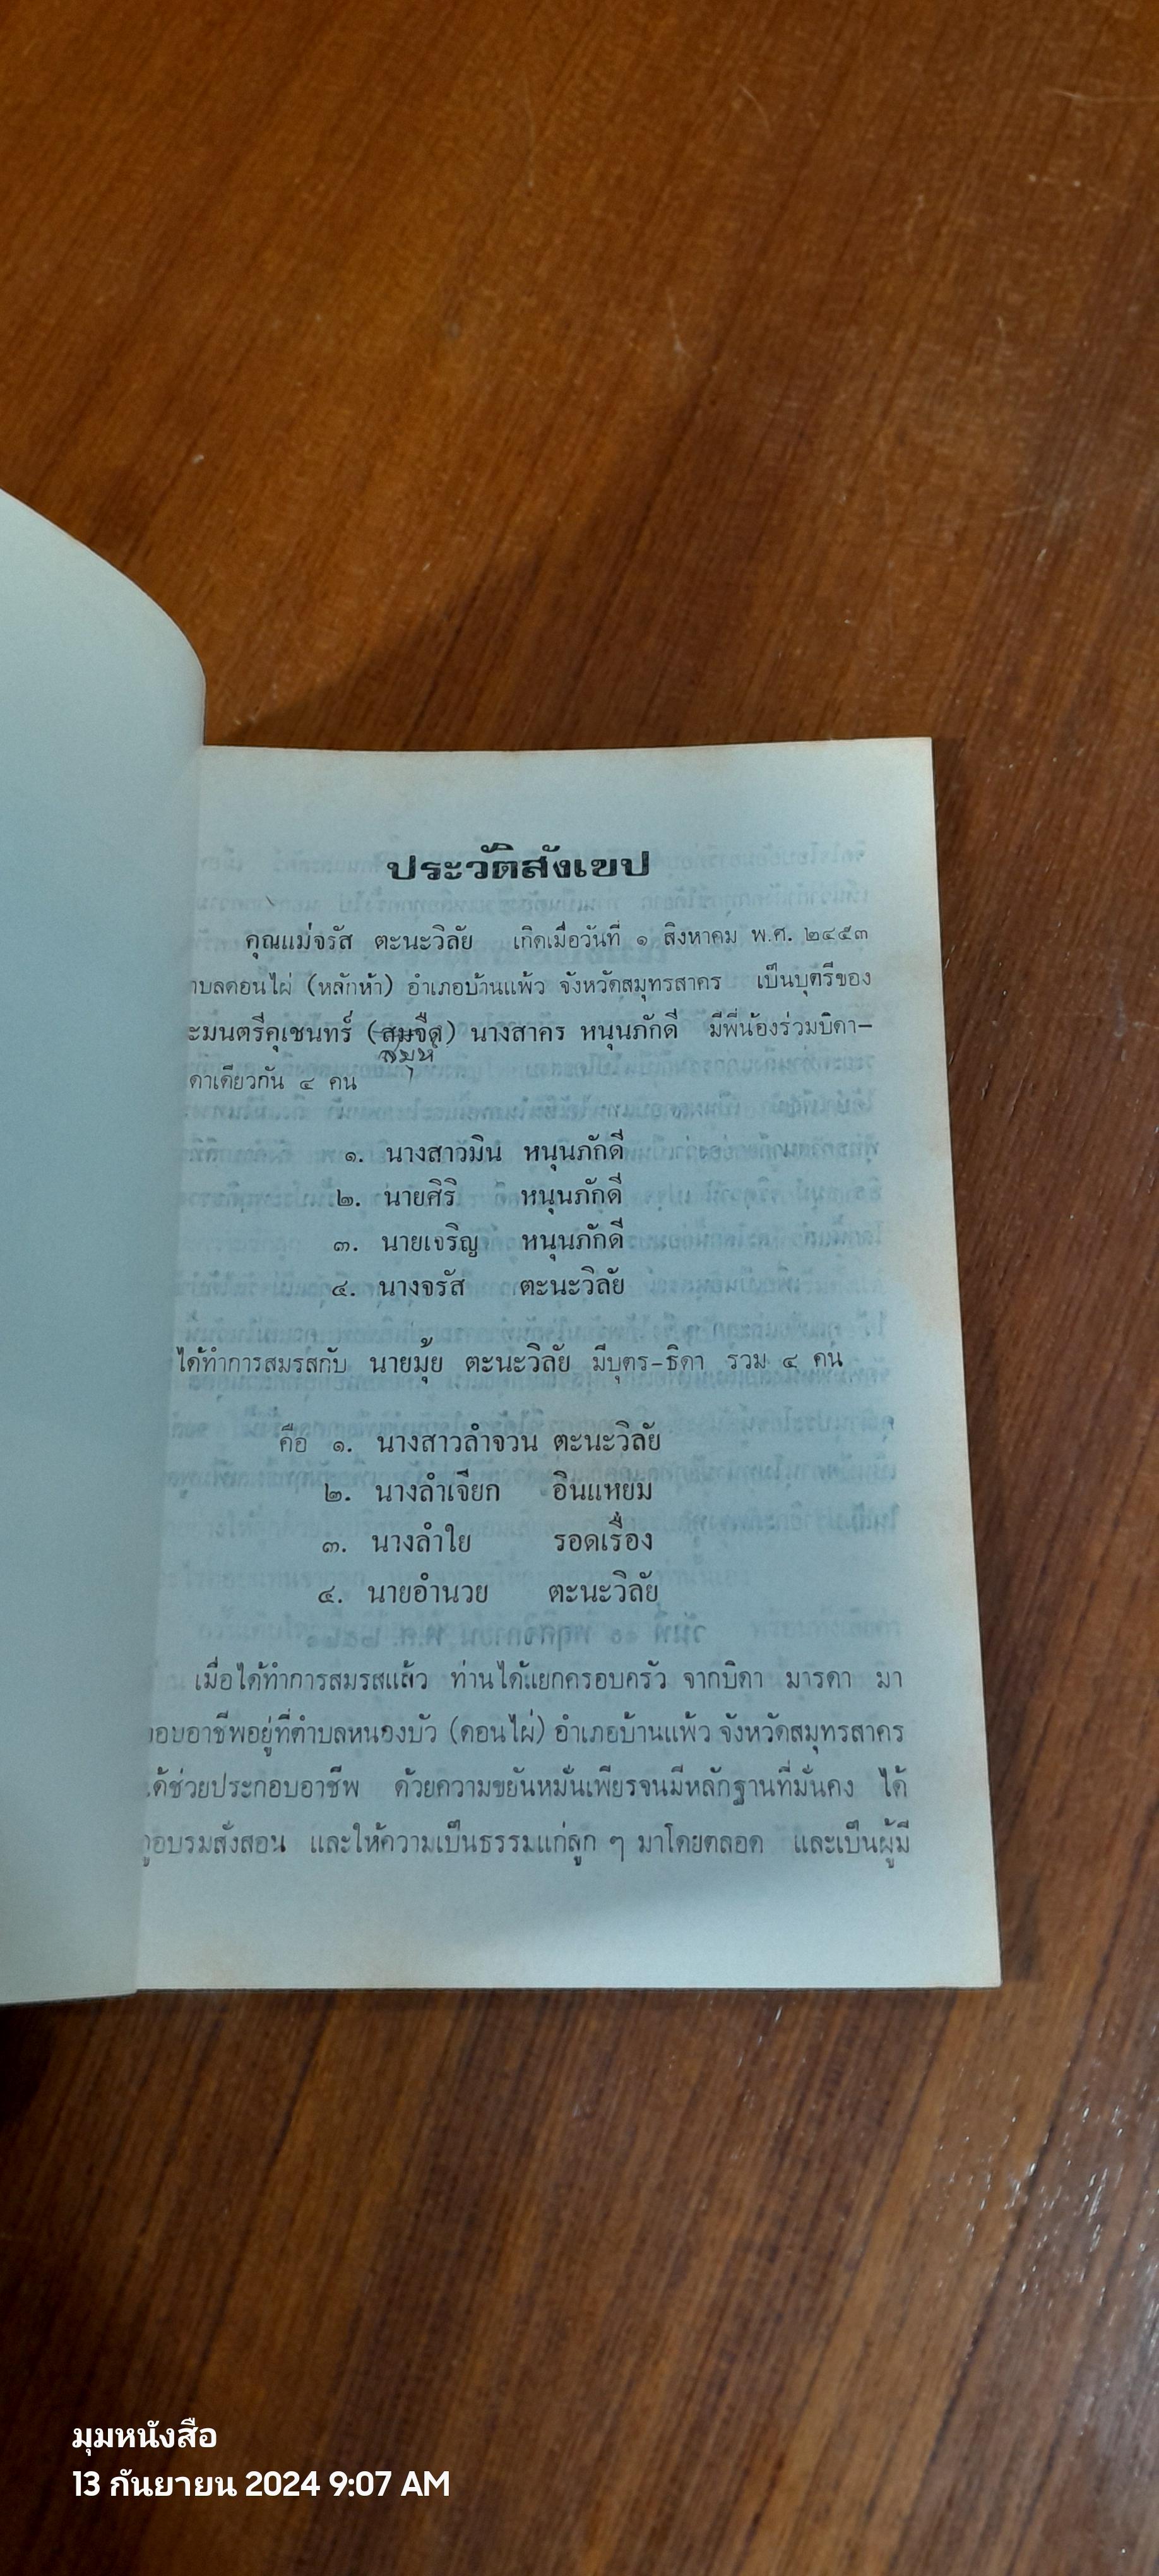 ประวัติสังเขป
คุณแม่จรัส ตะนะวิลัย เกิดเมื่อวันที่ ๑ สิงหาคม พ.ศ. ๒๔๕๓
าบลดอนไผ่ (หลักห้า) อำเภอบ้านแพ้ว จังหวัดสมุทรสาคร เป็นบุตรีของ
ะมนตรีคุเชนทร์ (สมจืด) นางสาคร หนุนภักดี มีพี่น้องร่วมบิดา-
สมุห์
ดาเดียวกัน ๔ คน
๑. นางสาวมิน หนุนภักดี
๒. นายศิริ หนุนภักดี
๓. นายเจริญ หนุนภักดี
๔. นางจรัส ตะนะวิลัย
ได้ทำการสมรสกับ นายมุ้ย ตะนะวิลัย มีบุตร-ธิดา รวม ๔ คน
คือ ๑. นางสาวลำจวน ตะนะวิลัย
๒. นางลำเจียก อินแหยม
๓. นางลำใย รอดเรื่อง
๔. นายอำนวย ตะนะวิลัย
เมื่อได้ทำการสมรสแล้ว ท่านได้แยกครอบครัว จากบิดา มารดา มา
อบอาชีพอยู่ที่ตำบลหนองบัว (ดอนไผ่) อำเภอบ้านแพ้ว จังหวัดสมุทรสาคร
ได้ช่วยประกอบอาชีพ ด้วยความขยันหมั่นเพียรจนมีหลักฐานที่มั่นคง ได้
อบรมสั่งสอน และให้ความเป็นธรรมแก่ลูก ๆ มาโดยตลอด และเป็นผู้มี
มุมหนังสือ
13 กันยายน 2024 9:07 AM